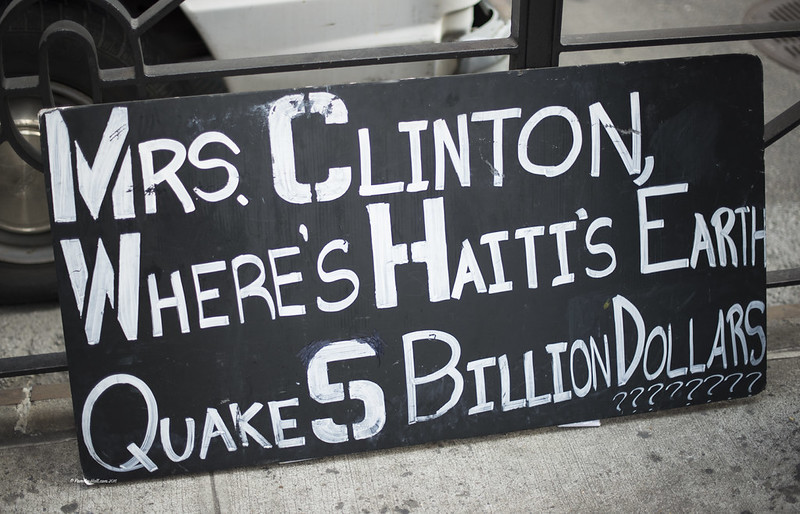 Mrs. Clinton,
Where's Haiti's Earth
Quake 5 Billion Dollars
????????